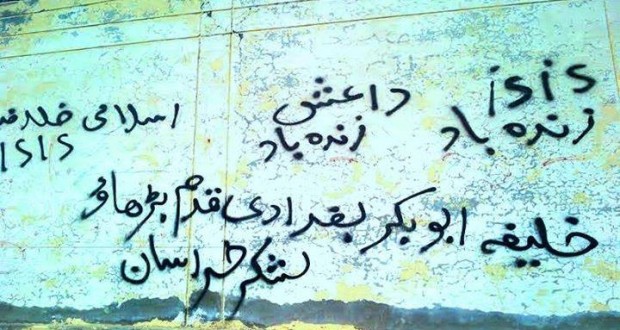 isis
زندہ باد
داعش
زندہ باد
اسلامی
ISIS
خلیفہ ابوبکر بغدادی قدم بڑھاؤ
لشکر خراسان